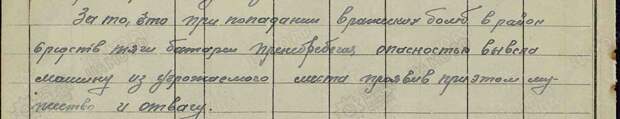 За то, что при попадании вражеских бомб в район
средств тяги батареи пренебрегая опасностью вывела
машину из угрожаемого места проявив при этом му-
жество и отвагу.